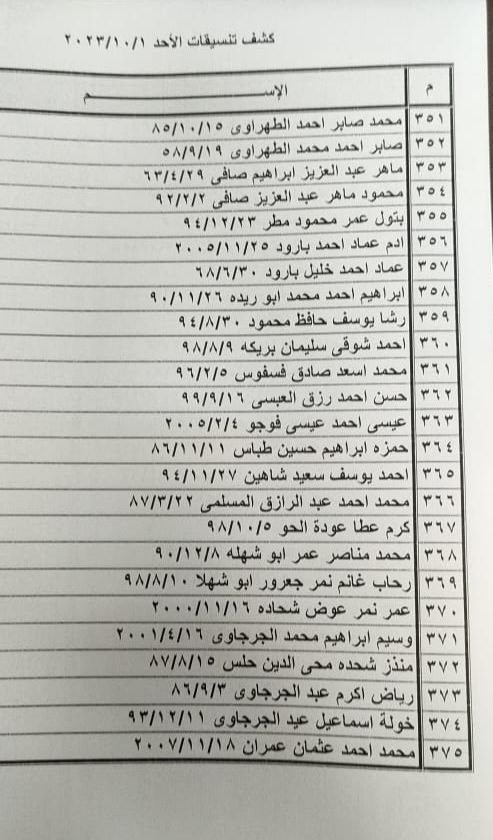 كشف تنسيقات الأحد ٢٠٢٣/١٠/١
م الإســـــــــــم
٣٥١ محمد صابر احمد الطهراوى ٨٥/١٠/١٥
٣٥٢ صابر احمد محمد الطهراوى ٥٨/٩/١٩
٣٥٣ ماهر عبد العزيز ابراهيم صافى ٦٣/٤/٢٩
٣٥٤ محمود ماهر عبد العزيز صافى ٩٢/٢/٢
٣٥٥ بتول عمر محمود مطر ٩٤/١٢/٢٣
٣٥٦ ادم عماد احمد بارود ٢٠٠٥/١١/٢٥
٣٥٧ عماد احمد خليل بارود ٦٨/٦/٣٠
٣٥٨ ابراهيم احمد محمد ابو ريده ٩٠/١١/٢٦
٣٥٩ رشا يوسف حافظ محمود ٩٤/٨/٣٠
٣٦٠ احمد شوقى سليمان بريكه ٩٨/٨/٩
٣٦١ محمد اسعد صادق فسفوس ٩٦/٢/٥
٣٦٢ حسن احمد رزق العبسى ٩٩/٩/١٦
٣٦٣ عيسى احمد عيسى فوجو ٢٠٠٥/٢/٤
٣٦٤ حمزه ابراهيم حسين طباس ٨٦/١١/١١
٣٦٥ احمد يوسف سعيد شاهين ٩٤/١١/٢٧
٣٦٦ محمد احمد عبد الرازق المسلمى ٨٧/٣/٢٢
٣٦٧ كرم عطا عودة الحو ٩٨/١٠/٥
٣٦٨ محمد مناصر عمر ابو شهله ٩٠/١٢/٨
٣٦٩ رحاب غانم نمر جعرور ابو شهلا ٩٨/٨/١٠
٣٧٠ عمر نمر عوض شحاده ٢٠٠٠/١١/١٦
٣٧١ وسيم ابراهيم محمد الجرجاوى ٢٠٠١/٤/١٦
٣٧٢ منذز شحده محى الدين حلس ٨٧/٨/١٥
٣٧٣ رياض اكرم عبد الجرجاوى ٨٦/٩/٣
٣٧٤ خولة اسماعيل عيد الجرجاوى ٩٣/١٢/١١
٣٧٥ محمد احمد عثمان عمران ٢٠٠٧/١١/١٨